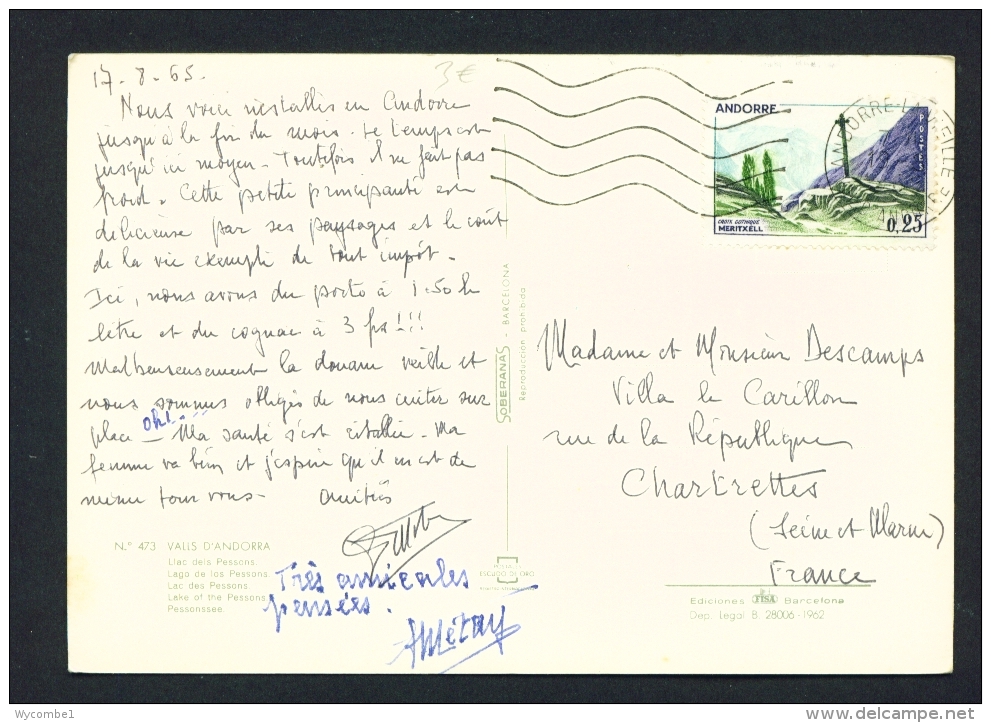 17-8-65.
3€
Nous voici installés en Andorre
jusqu'à la fin du mois. Le temps est
jusqu'ici moyen. Toutefois il ne fait pas
froid. Cette petite principauté est
délicieuse par ses paysages et le coût
de la vie exempte de tout impôt.
Ici, nous avons du porto à 1.50 le
litre et du cognac à 3 frs!!!
Malheureusement la douane veille et
nous sommes obligés de nous cuiter sur
oh!....
place — Ma santé s'est rétablie. Ma
femme va bien et j'espère qu'il en est de
même pour vous. Amitiés
Très amicales
pensées.
N.º 473 VALLS D'ANDORRA
Llac dels Pessons.
Lago de los Pessons.
Lac des Pessons
Lake of the Pessons
Pessonssee.
SOBERANAS - BARCELONA
Reproducción prohibida
POSTAL
ESCUDO DE ORO
ANDORRE
POSTES
CROIX GOTHIQUE
MERITXELL
0,25
ANDORRE-LA-VIEILLE
Madame et Monsieur Descamps
Villa le Carillon
rue de la République
Chartrettes
(Seine et Marne)
France
Ediciones FISA Barcelona
Dep. Legal B. 28006-1962
Wycombe1
www.delcampe.net